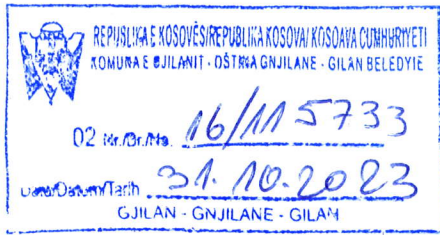 REPUBLIKA E KOSOVËS/REPUBLIKA KOSOVA/KOSOVA CUMHURIYETI
KOMUNA E GJILANIT - OPŠTINA GNJILANE - GILAN BELEDYIE
02 Nr./Br./No. 16/115733
Data/Datum/Tarih 31.10.2023
GJILAN - GNJILANE - GILAN